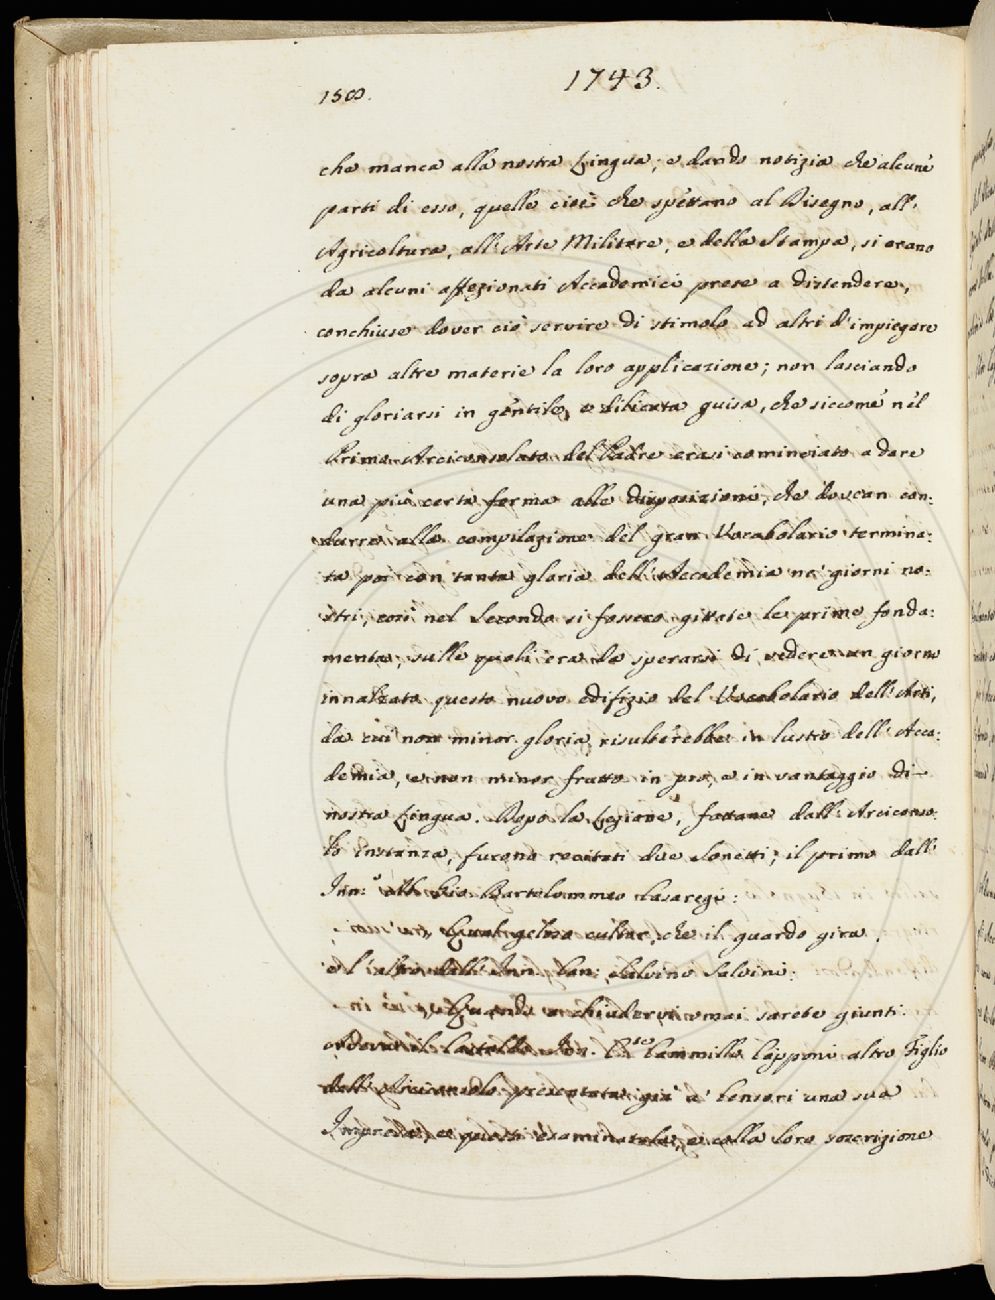 1743.
158.
che manca alla nostra Lingua; e dando notizia che alcune
parti di esso, quelle cioè che spettano al Disegno, all'
Agricoltura, all' Arte Militare, e della Stampa, si erano
da alcuni affezionati Accademici prese a distendere,
conchiuse dover ciò servire di stimolo ad altri d'impiegare
sopra altre materie la loro applicazione; non lasciando
di gloriarsi in gentile, e dilicata guisa, che siccome nel
Primo Arciconsolato del Padre erasi cominciato a dare
una più certa forma alle disposizioni, che dovean con:
durre alla compilazione del gran Vocabolario termina:
ta poi con tanta gloria dell' Accademia ne' giorni no:
stri, così nel Secondo si fossero gittate le prime fonda:
menta, sulle quali era da sperarsi di vedere un giorno
innalzato questo nuovo edifizio del Vocabolario dell' Arti,
da cui non minor gloria risulterebbe in lustro dell' Acca:
demia, e non minor frutto in pro, e in vantaggio di
nostra Lingua. Dopo la Lezione, fattane dall' Arciconso:
lo instanza, furono recitati due Sonetti; il primo dall'
Inn: Ab. Gio. Bartolommeo Casaregi:
Qual gelosa cultor, che il guardo gira.
e l'altro dall' Inn. Can: Salvino Salvini:
Quando a chiudervi mai sarete giunti.
il Castaldo Inn. Cammillo Capponi altro Figlio
dell' Arciconsolo presentata già a' Censori una sua
Impresa, e questi esaminatala, e colla loro soscrizione